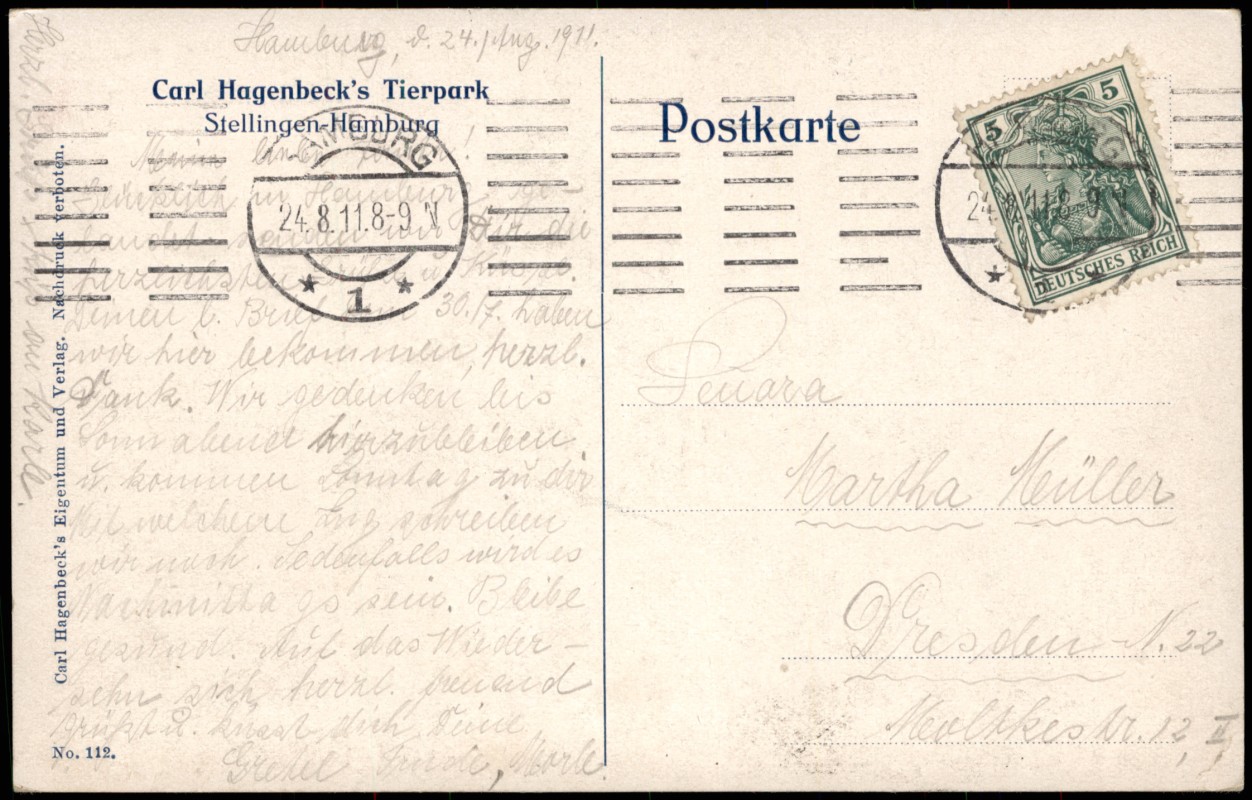 Hamburg, d. 24. Aug. 1911.
Carl Hagenbeck's Tierpark
Stellingen-Hamburg
Postkarte
HAMBURG
24.8.11.8-9 N
* 1 *
5 5
DEUTSCHES REICH
24.8.11.8-9 N
Glücklich in Hamburg ge-
landet senden wir Dir die
herzlichsten Grüße u. Küsse.
Deinen l. Brief vom 30./7. haben
wir hier bekommen, herzl.
Dank. Wir gedenken bis
Sonnabend hierzubleiben
u. kommen Sonntag zu dir
Mit welchem Zug schreiben
wir noch. Jedenfalls wird es
Nachmittags sein. Bleibe
gesund. Auf das Wieder-
sehn sich herzl. freuend
Grüßt u. küsst dich Deine
Gretel
Martha Müller
Dresden N. 22
Moltkestr. 12, II
Carl Hagenbeck's Eigentum und Verlag. Nachdruck verboten.
No. 112.